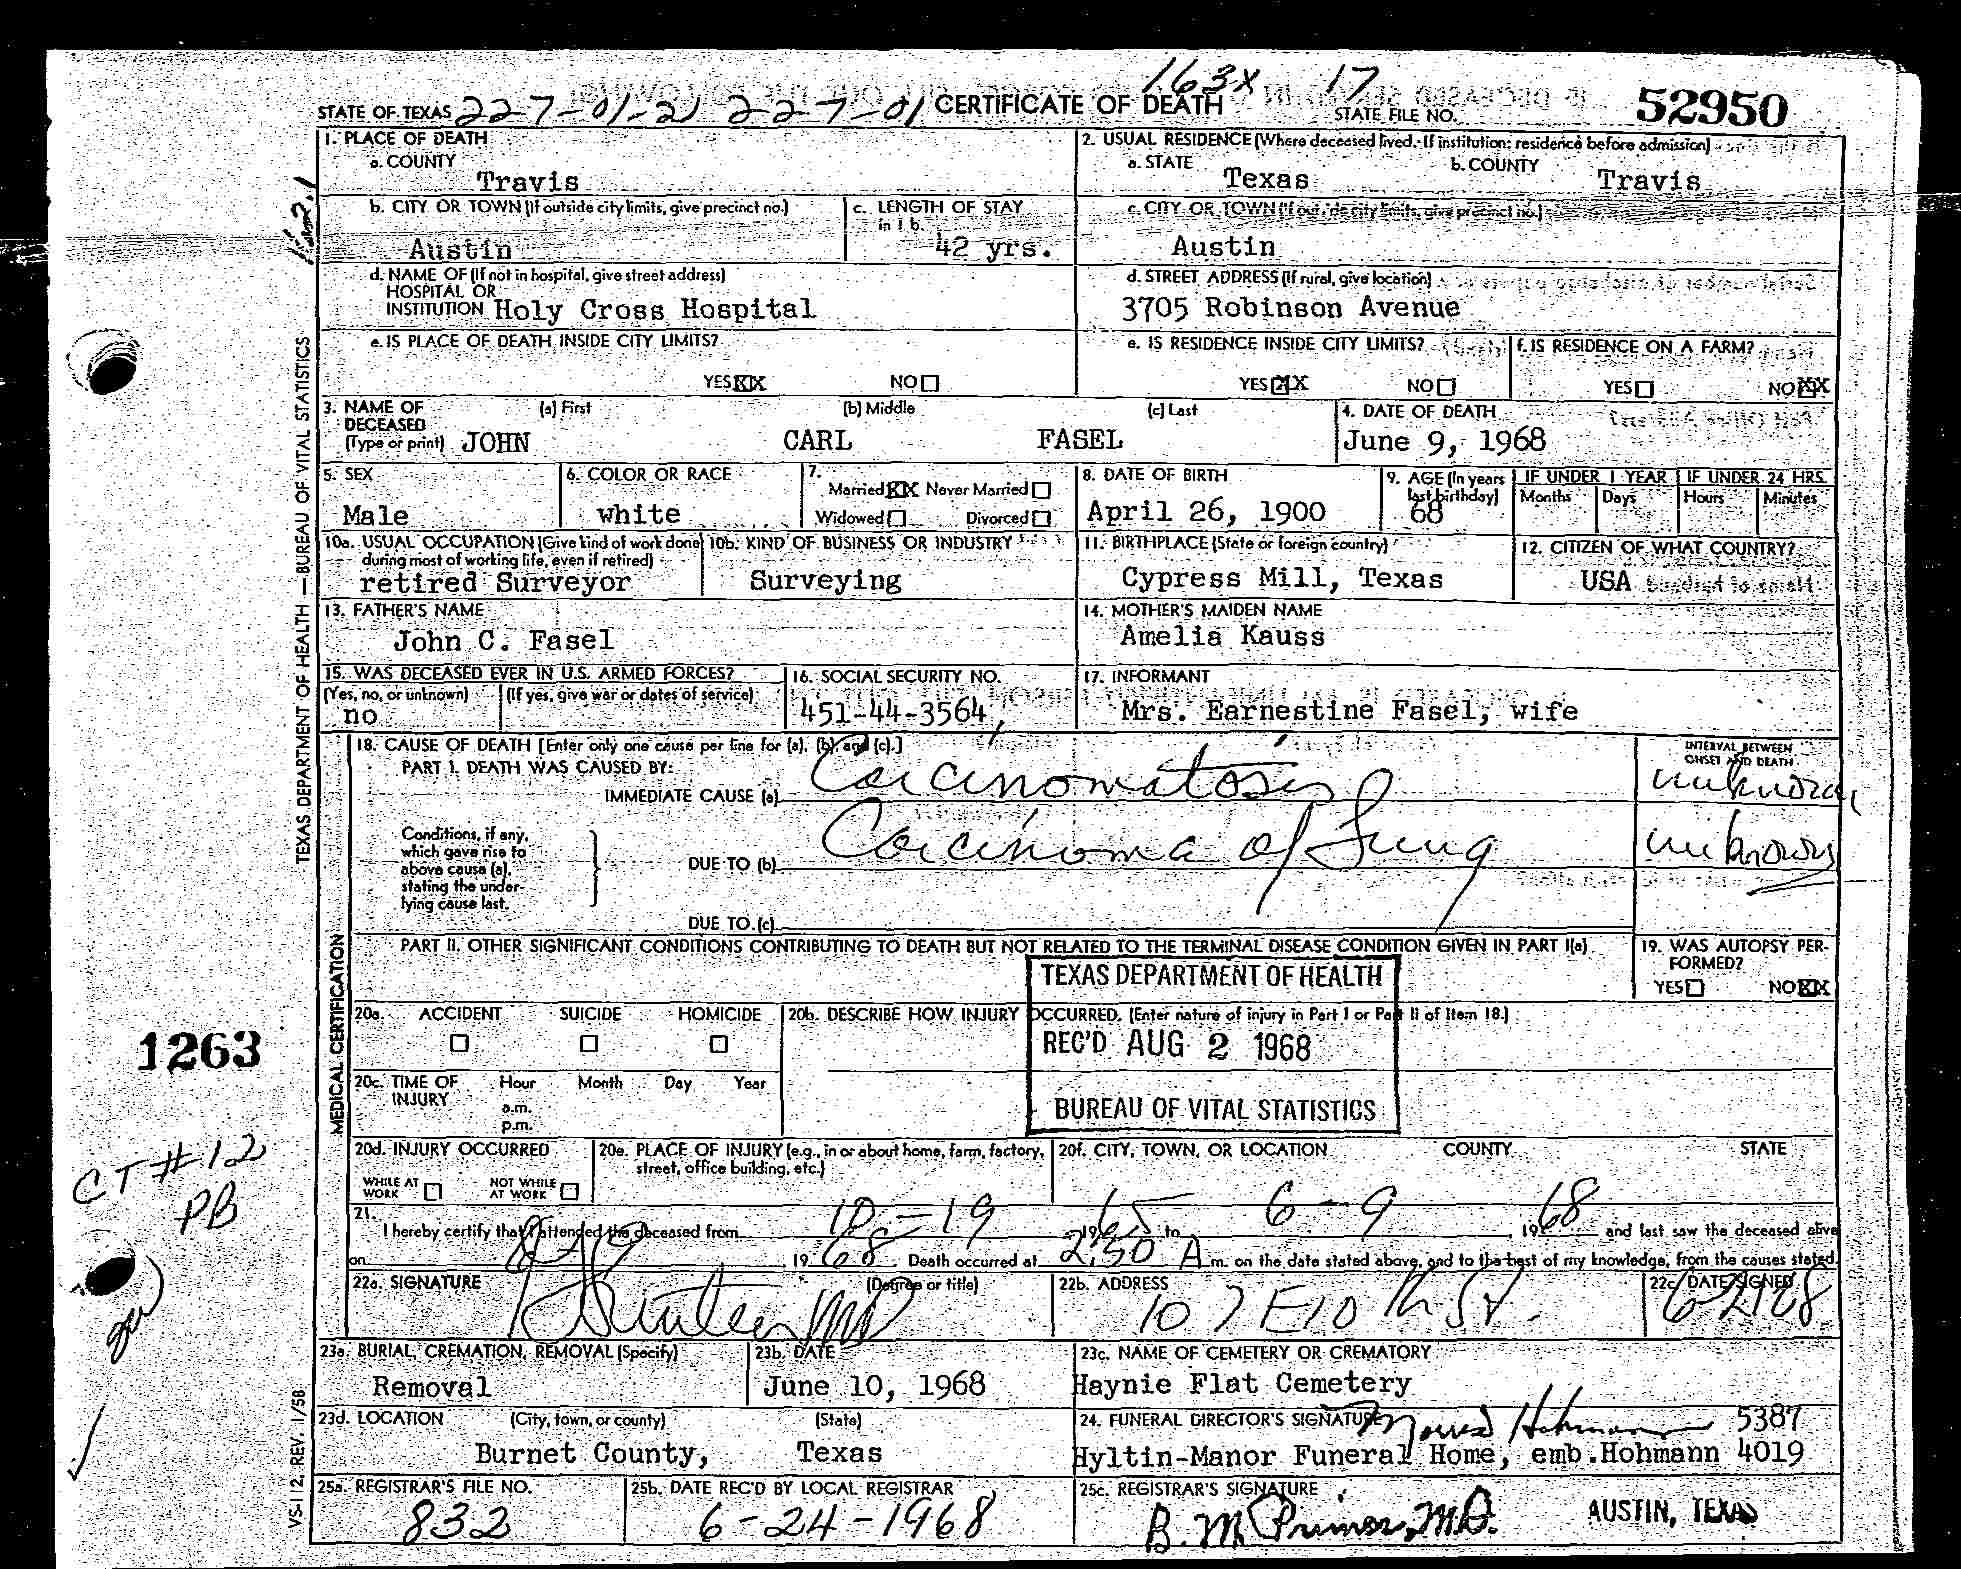 163x 17
STATE OF TEXAS 227-01-21 227-01 CERTIFICATE OF DEATH STATE FILE NO. 52950
1. PLACE OF DEATH
a. COUNTY
Travis
2. USUAL RESIDENCE (Where deceased lived. If institution: residence before admission)
a. STATE Texas b. COUNTY Travis
b. CITY OR TOWN (If outside city limits, give precinct no.)
Austin
c. LENGTH OF STAY in 1 b.
42 yrs.
c. CITY OR TOWN (If outside city limits, give precinct no.)
Austin
d. NAME OF (If not in hospital, give street address)
HOSPITAL OR
INSTITUTION Holy Cross Hospital
d. STREET ADDRESS (If rural, give location)
3705 Robinson Avenue
e. IS PLACE OF DEATH INSIDE CITY LIMITS?
YES XX NO
e. IS RESIDENCE INSIDE CITY LIMITS?
YES XX NO
f. IS RESIDENCE ON A FARM?
YES NO XX
3. NAME OF DECEASED (Type or print)
(a) First (b) Middle (c) Last
JOHN CARL FASEL
4. DATE OF DEATH
June 9, 1968
5. SEX
Male
6. COLOR OR RACE
white
7.
Married XX Never Married
Widowed Divorced
8. DATE OF BIRTH
April 26, 1900
9. AGE (In years last birthday)
68
IF UNDER 1 YEAR
Months Days
IF UNDER 24 HRS.
Hours Minutes
10a. USUAL OCCUPATION (Give kind of work done during most of working life, even if retired)
retired Surveyor
10b. KIND OF BUSINESS OR INDUSTRY
Surveying
11. BIRTHPLACE (State or foreign country)
Cypress Mill, Texas
12. CITIZEN OF WHAT COUNTRY?
USA
13. FATHER'S NAME
John C. Fasel
14. MOTHER'S MAIDEN NAME
Amelia Kauss
15. WAS DECEASED EVER IN U.S. ARMED FORCES?
(Yes, no, or unknown) (If yes, give war or dates of service)
no
16. SOCIAL SECURITY NO.
451-44-3564
17. INFORMANT
Mrs. Earnestine Fasel, wife
18. CAUSE OF DEATH [Enter only one cause per line for (a), (b), and (c).]
PART I. DEATH WAS CAUSED BY:
IMMEDIATE CAUSE (a) Carcinomatosis
INTERVAL BETWEEN ONSET AND DEATH
unknown
Conditions, if any, which gave rise to above cause (a), stating the underlying cause last.
DUE TO (b) Carcinoma of Lung
unknown
DUE TO (c)
PART II. OTHER SIGNIFICANT CONDITIONS CONTRIBUTING TO DEATH BUT NOT RELATED TO THE TERMINAL DISEASE CONDITION GIVEN IN PART I(a)
19. WAS AUTOPSY PERFORMED?
YES NO XX
TEXAS DEPARTMENT OF HEALTH
REC'D AUG 2 1968
BUREAU OF VITAL STATISTICS
20a. ACCIDENT SUICIDE HOMICIDE
20b. DESCRIBE HOW INJURY OCCURRED. (Enter nature of injury in Part I or Part II of Item 18.)
20c. TIME OF INJURY Hour Month Day Year
a.m.
p.m.
20d. INJURY OCCURRED
WHILE AT WORK NOT WHILE AT WORK
20e. PLACE OF INJURY (e.g., in or about home, farm, factory, street, office building, etc.)
20f. CITY, TOWN, OR LOCATION COUNTY STATE
21.
I hereby certify that I attended the deceased from 10-19 1965 to 6-9 1968 and last saw the deceased alive
on 1968 Death occurred at 2:30 A m. on the date stated above, and to the best of my knowledge, from the causes stated.
22a. SIGNATURE (Degree or title)
MD
22b. ADDRESS
107 E 10th St.
22c. DATE SIGNED
23a. BURIAL, CREMATION, REMOVAL (Specify)
Removal
23b. DATE
June 10, 1968
23c. NAME OF CEMETERY OR CREMATORY
Haynie Flat Cemetery
23d. LOCATION (City, town, or county) (State)
Burnet County, Texas
24. FUNERAL DIRECTOR'S SIGNATURE Morris Hohmann 5387
Hyltin-Manor Funeral Home, emb.Hohmann 4019
25a. REGISTRAR'S FILE NO.
832
25b. DATE REC'D BY LOCAL REGISTRAR
6-24-1968
25c. REGISTRAR'S SIGNATURE
B. M. Primer, M.D. AUSTIN, TEXAS
TEXAS DEPARTMENT OF HEALTH — BUREAU OF VITAL STATISTICS
MEDICAL CERTIFICATION
VS-112, REV. 1/58
1263
CT #12
PB